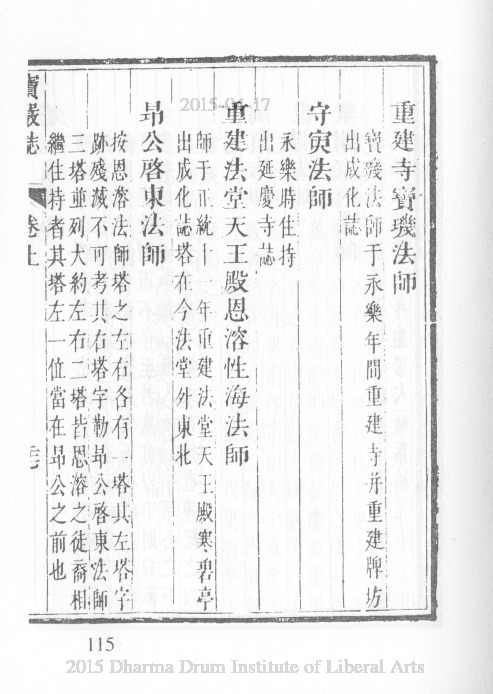 重建寺寶璣法師
寶璣法師于永樂年間重建寺并重建牌坊
出成化誌
守寅法師
永樂時住持
出延慶寺誌
重建法堂天王殿恩溶性海法師
師于正統十一年重建法堂天王殿寒碧亭
出成化誌塔在今法堂外東北
昻公啓東法師
按恩溶法師塔之左右各有一塔其左塔字
跡殘滅不可考其右塔字勒昻公啓東法師
三塔並列大約左右二塔皆恩溶之徒裔相
繼住持者其塔左一位當在昻公之前也
寶嚴誌
卷上
2015-04-17
115
2015 Dharma Drum Institute of Liberal Arts